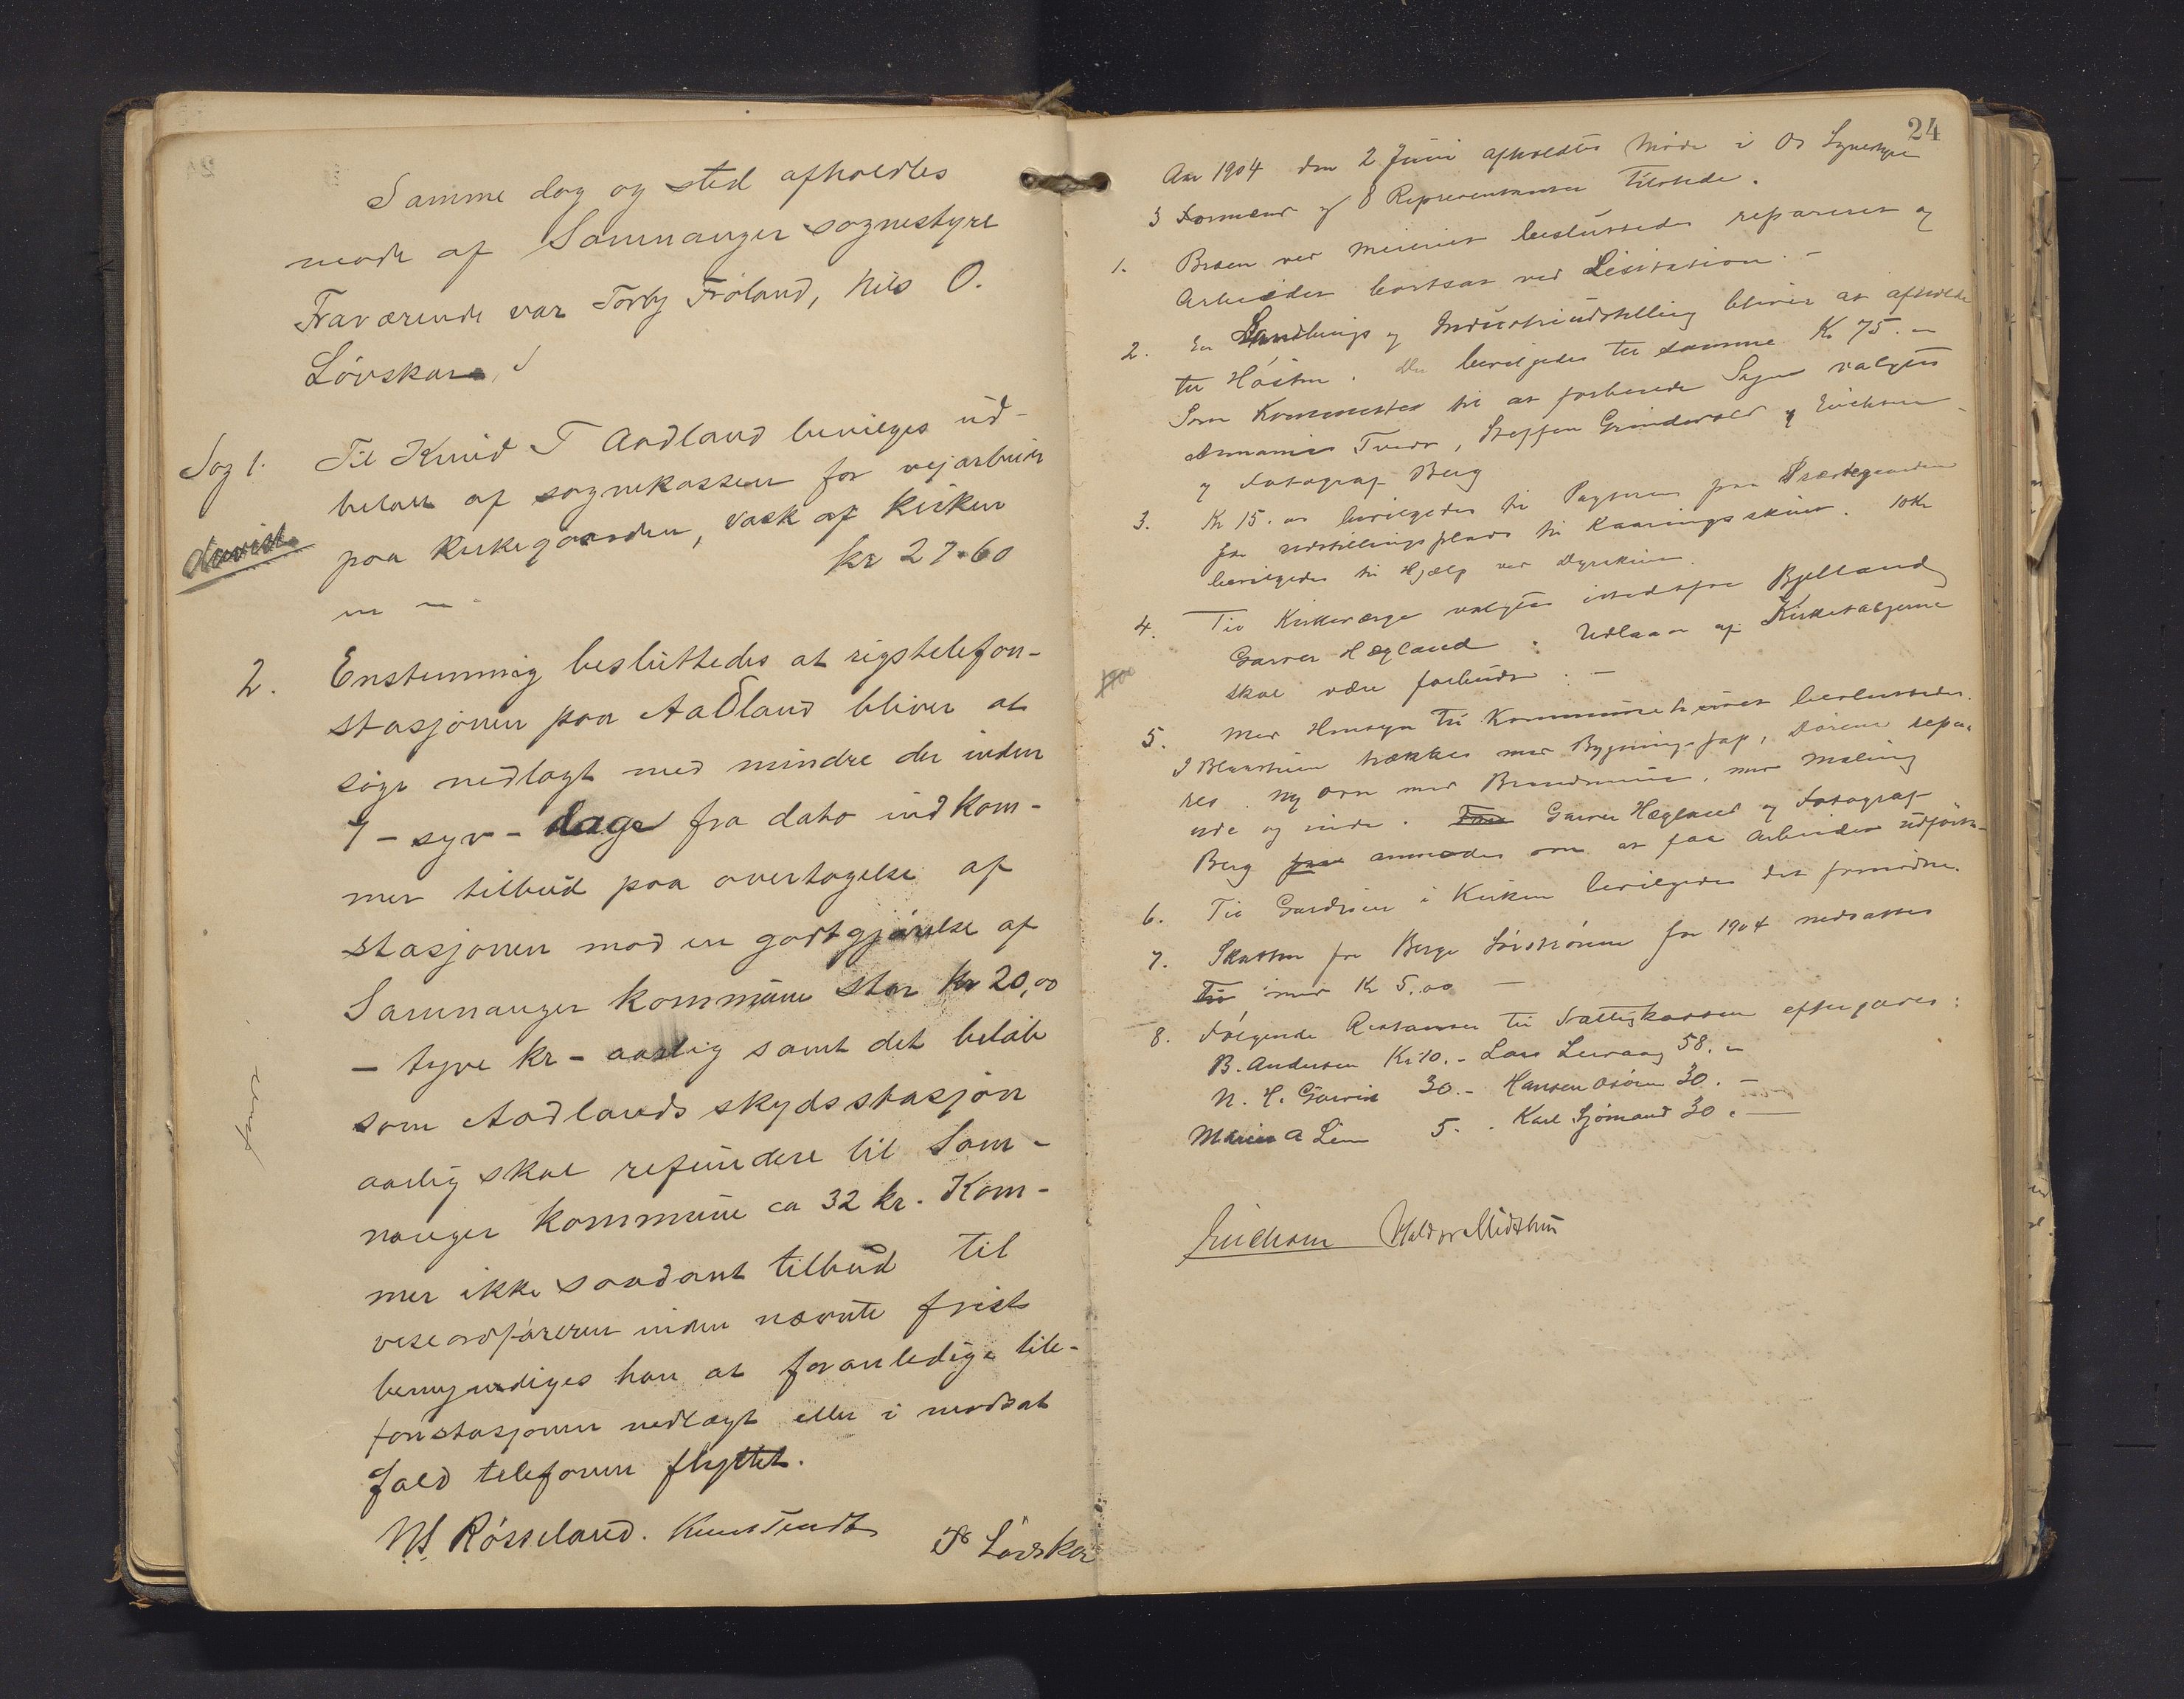 Samme dag og sted afholdtes
møde af Samnanger sognestyre
Fraværende var Torb Frøland, Nils O.
Løvskar
Sag 1. Til Knud T Aadland bevilges ud-
betalt af sognekassen for vejarbeide
paa kirkegaarden, vask af kirken
m m. kr 27.60
2. Enstemmig besluttedes at rigstelefon-
stasjonen paa Aadland bliver at
søge nedlagt med mindre der inden
7 - syv - dage fra dato indkom-
mer tilbud paa overtagelse af
stasjonen mod en godtgjørelse af
Samnanger kommune stor kr 20,00
- tyve kr - aarlig samt det beløb
som Aadlands skydsstasjon
aarlig skal refundere til Sam-
nanger kommune ca 32 kr. Kom-
mer ikke saadant tilbud til
viseordføreren inden nævnte frist
bemyndiges han at foranledige tele-
fonstasjonen nedlagt eller i modsat
fald telefonen flyttet.
N. Røsseland. Knut Tveidt P Løvskar
24
Aar 1904 den 2 Juni afholdtes Møde i Os Sognestyre
3 Formænd og 8 Repræsentanter tilstede.
1. Broen ved Meieriet besluttedes repareret og
Arbeidet bortsat ved Lisitation. -
2. En Handlings og Industriudstilling bliver at afholde
til Høsten. Der bevilgedes til samme Kr 75. -
Som Kommite til at forberede Sagen valgtes
Annanias Tveit, Steffen Grindevold og Erichsen
og Fotograf Berg
3. Kr 15.00 bevilgedes til Pagteren paa Præstegaarden
for udstillingsplads til Kaaringsskuet. 10 Kr
bevilgedes til Hjælp ved Dyrskuet.
4. Til Kirkeværge valgtes istedetfor Bjelland
Garver Hegland. Udlaan af Kirkestagerne
skal være forbudt. -
5. Med Hensyn til Kommunehuset besluttedes.
I Blaastuen trækkes med Bygningspap, Dørene repare
res. Ny Ovn med Brandmur, mer Maling
ude og inde. Garver Hegland og Fotograf
Berg anmodes om at faa Arbeidet udført. -
6. Til Gardiner i Kirken bevilgedes det fornødne.
7. Skatten for Berge Sørstrønen for 1904 nedsattes
Til med Kr 5.00 -
8. Følgende Restanser til Fattigkassen eftergaves:
B. Andersen Kr 10. - Lars Leiraag 58. -
N. H. Gaasvik 30. - Hansen Osøren 30. -
Marie A Lien 5. . Karl Sjømand 30. -
Erichsen Haldor Midthun